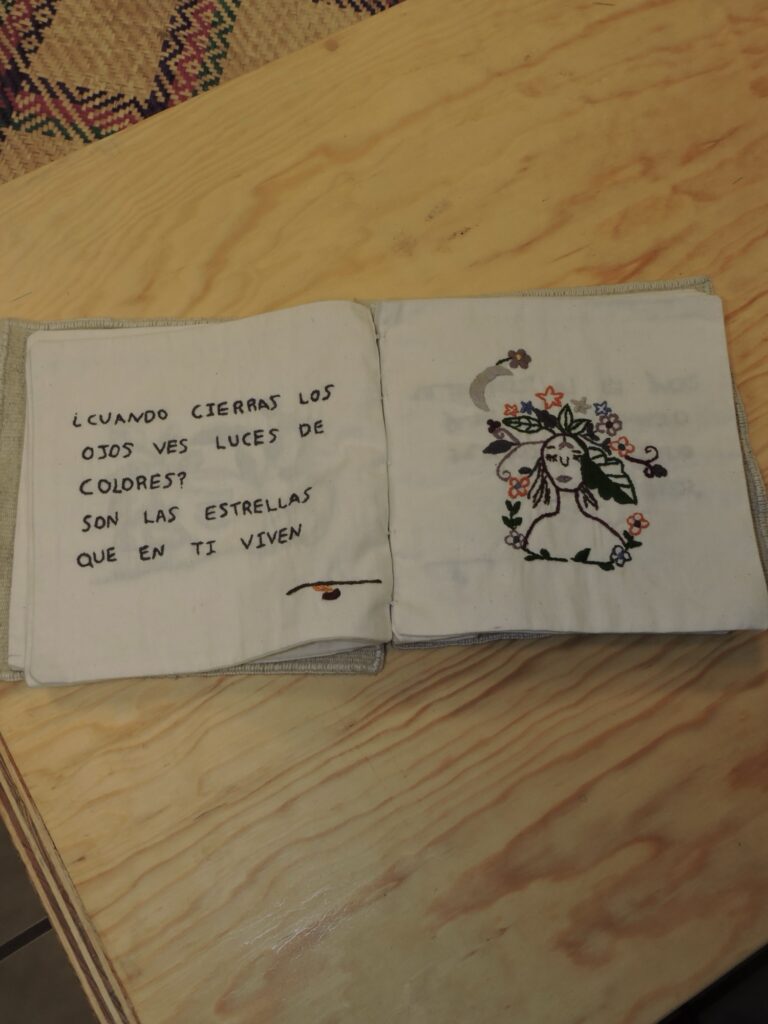 ¿CUANDO CIERRAS LOS
OJOS VES LUCES DE
COLORES?
SON LAS ESTRELLAS
QUE EN TI VIVEN